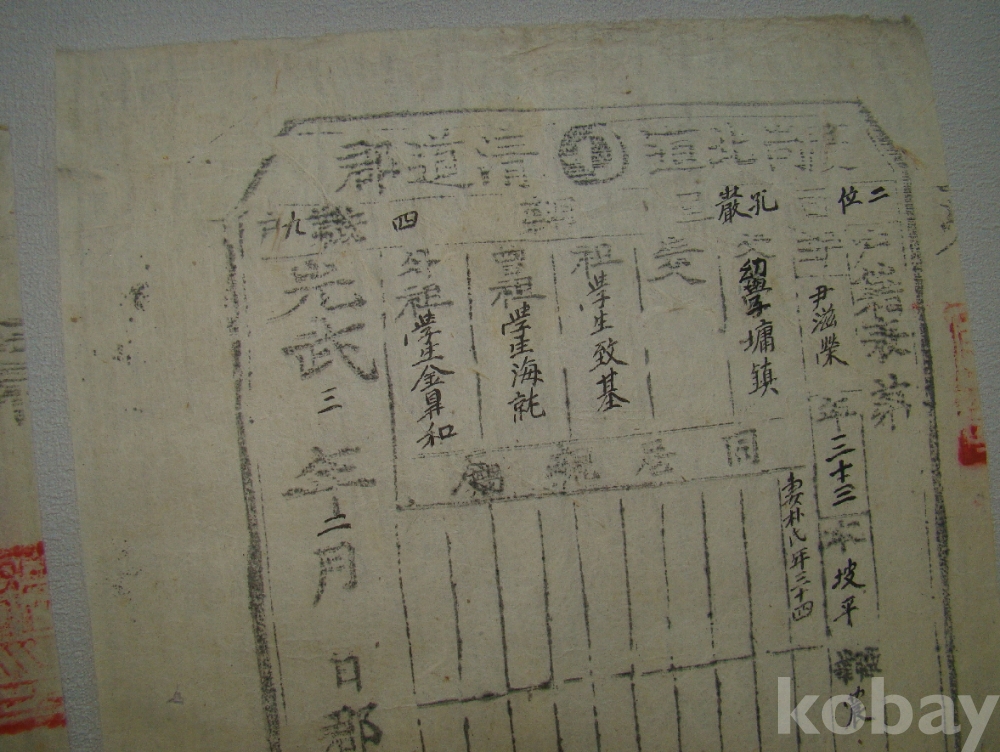 慶尚北道 清道郡
二位
孔巖
四
九
戶籍表 第
尹滋榮
年三十三
本坡平
農
父幼學墉鎮
父
祖學生致基
曾祖學生海
外祖學生金鼻和
同居親屬
妻朴氏年三十四
光武三年二月 日郡
kobay